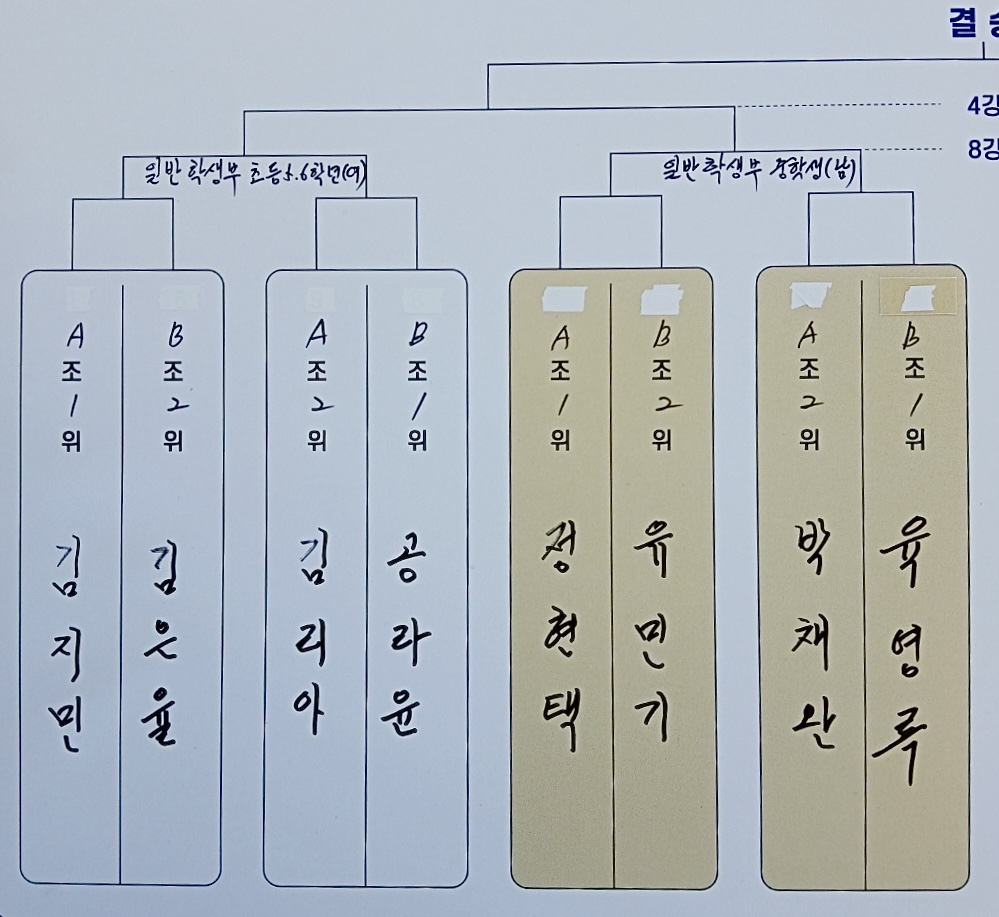 결승
4강
8강
일반 학생부 초등 5.6학년(여)
일반학생부 중학생(남)
A조1위 김지민
B조2위 김은율
A조2위 김리아
B조1위 공라윤
A조1위 정현택
B조2위 유민기
A조2위 박채완
B조1위 육영록